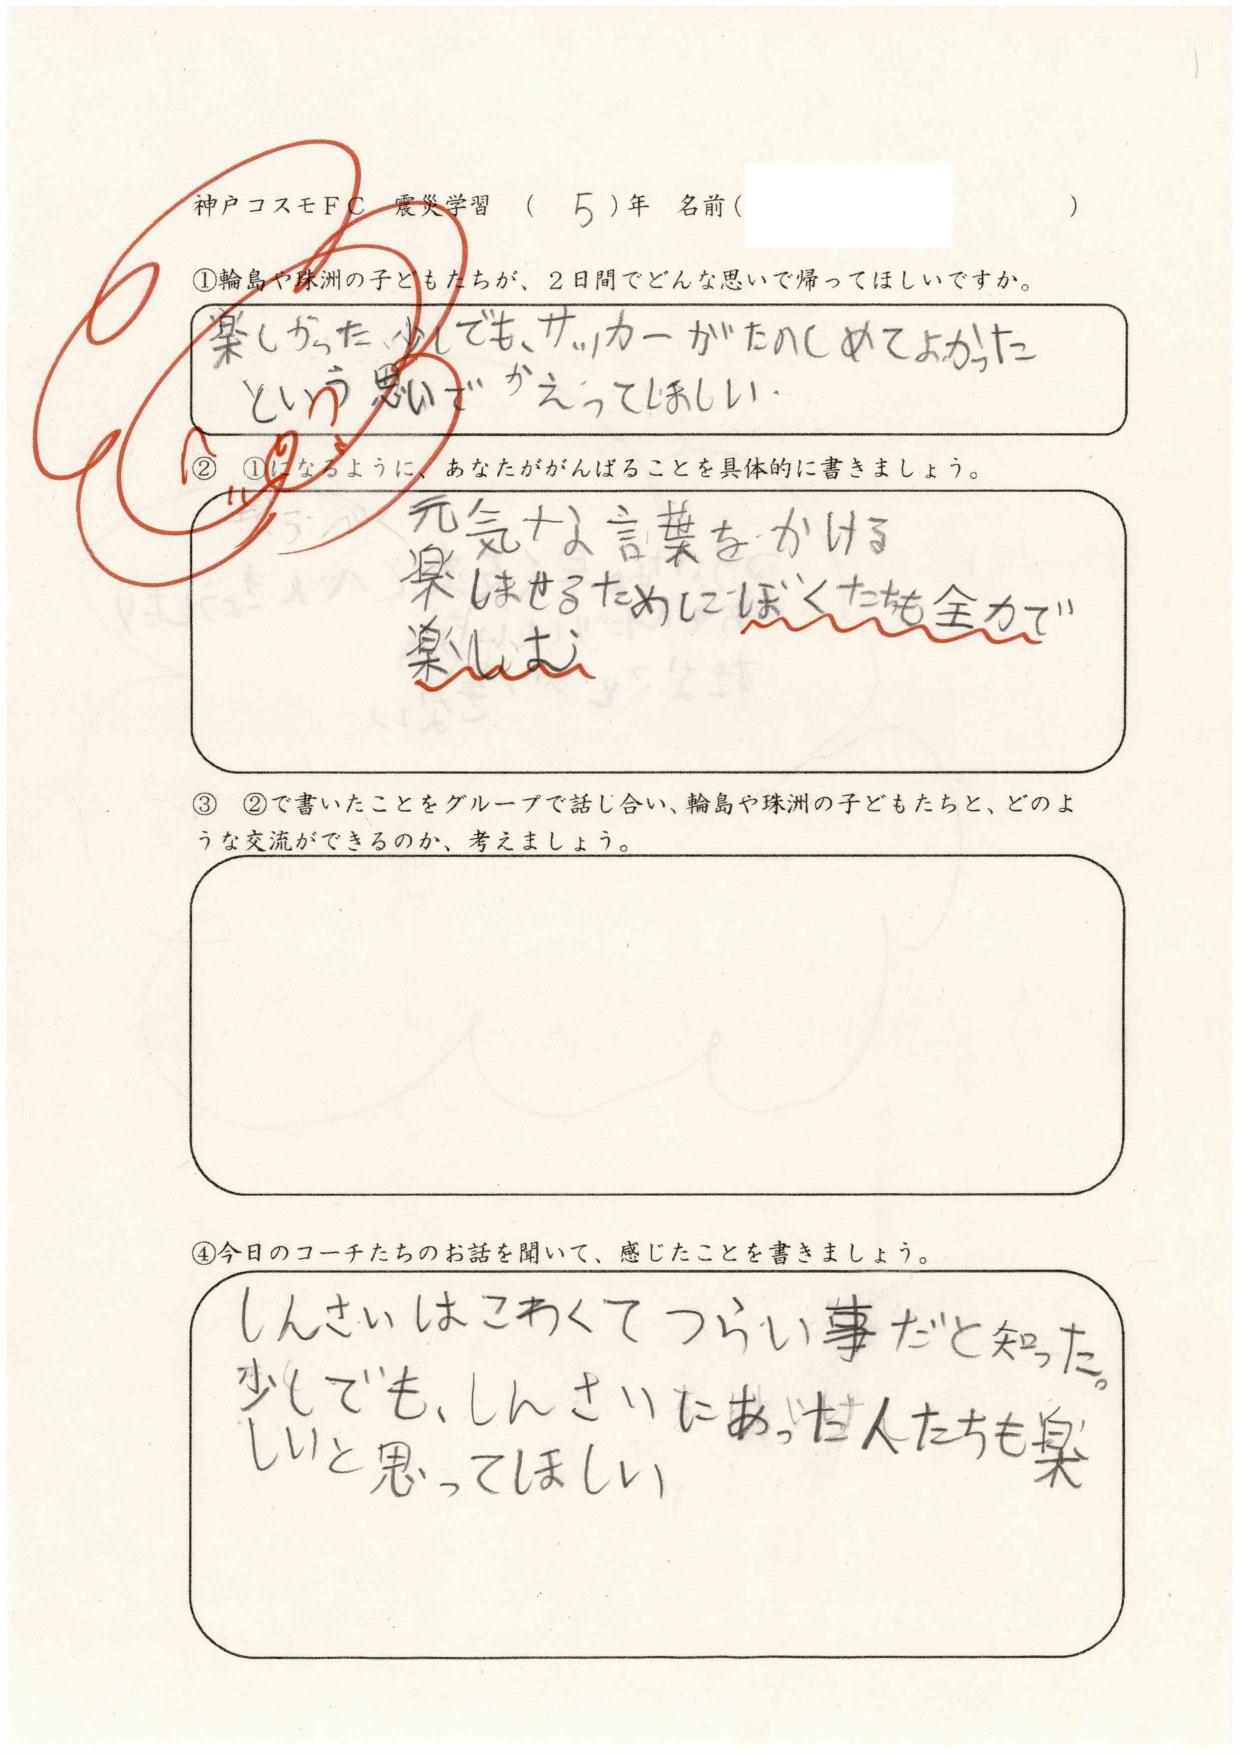 神戸コスモFC 震災学習 ( 5 )年 名前( )
①輪島や珠洲の子どもたちが、2日間でどんな思いで帰ってほしいですか。
楽しかった 少しでも、サッカーがたのしめてよかった
という思いで かえってほしい.
② ①になるように、あなたががんばることを具体的に書きましょう。
元気な言葉をかける
楽しませるためにぼくたちも全力で
楽しむ
③ ②で書いたことをグループで話し合い、輪島や珠洲の子どもたちと、どのよ
うな交流ができるのか、考えましょう。
④今日のコーチたちのお話を聞いて、感じたことを書きましょう。
しんさいはこわくてつらい事だと知った。
少しでも、しんさいにあった人たちも楽
しいと思ってほしい